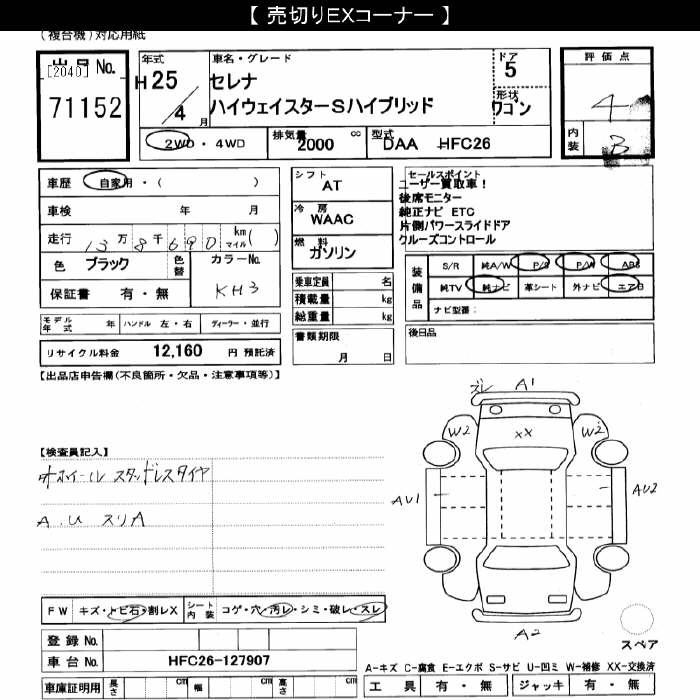 【 売切りEXコーナー 】
(複合機)対応用紙
出品 No.
[2040]
71152
年式
H25
4月
車名・グレード
セレナ
ハイウェイスターSハイブリッド
ドア
5
形状
ワゴン
評価点
4
内装
B
2WD・4WD
排気量
2000 cc
型式
DAA HFC26
車歴 自家用・( )
車検 年 月
走行 13万8千690 km マイル( )
色 ブラック 色替 カラーNo.
KH3
保証書 有・無
シフト
AT
冷房
WAAC
燃料
ガソリン
乗車定員 名
積載量 kg
総重量 kg
セールスポイント
ユーザー買取車!
後席モニター
純正ナビ ETC
片側パワースライドドア
クルーズコントロール
装備品
S/R 純A/W P/S P/W ABS
純TV 純ナビ 革シート 外ナビ エアB
ナビ型番:
モデル年式 年 ハンドル 左・右 ディーラー・並行
書類期限
月 日
後日品
リサイクル料金 12,160 円 預託済
【出品店申告欄(不良箇所・欠品・注意事項等)】
ズレ A1
W2 XX W2
AU1 AU2
A2
スペア
【検査員記入】
ホイール スタッドレスタイヤ
A.U スリA
FW キズ・トビ石・割レX シート内装 コゲ・穴・汚レ・シミ・破レ・スレ
登録 No.
車台 No. HFC26-127907
車庫証明用 長さ cm 幅 cm 高さ cm
A-キズ C-腐食 E-エクボ S-サビ U-凹ミ W-補修 XX-交換済
工具 有・無 ジャッキ 有・無